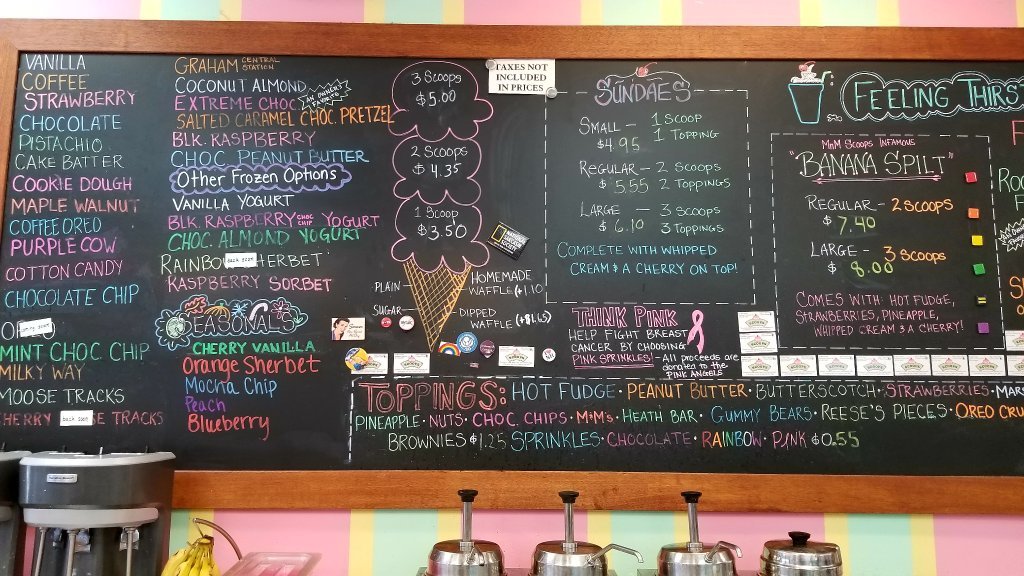 VANILLA
COFFEE
STRAWBERRY
CHOCOLATE
PISTACHIO
CAKE BATTER
COOKIE DOUGH
MAPLE WALNUT
COFFEE OREO
PURPLE COW
COTTON CANDY
CHOCOLATE CHIP
MINT CHOC CHIP
MILKY WAY
MOOSE TRACKS
CHERRY back soon SE TRACKS
GRAHAM CENTRAL STATION
COCONUT ALMOND
EXTREME CHOC
SALTED CARAMEL CHOC. PRETZEL
BLK. RASPBERRY
CHOC. PEANUT BUTTER
Other Frozen Options
VANILLA YOGURT
BLK. RASPBERRY CHOC CHIP YOGURT
CHOC. ALMOND YOGURT
RAINBOW back soon HERBET
RASPBERRY SORBET
SEASONALS
CHERRY VANILLA
Orange Sherbet
Mocha Chip
Peach
Blueberry
3 Scoops
$5.00
2 Scoops
$4.35
1 Scoop
$3.50
PLAIN
SUGAR
HOMEMADE
WAFFLE (+1.10
DIPPED
WAFFLE (+$1.65)
TAXES NOT
INCLUDED
IN PRICES
SUNDAES
SMALL — 1 SCOOP
$4.95 1 TOPPING
REGULAR — 2 SCOOPS
$5.55 2 TOPPINGS
LARGE — 3 SCOOPS
$6.10 3 TOPPINGS
COMPLETE WITH WHIPPED
CREAM & A CHERRY ON TOP!
THINK PINK
HELP FIGHT BREAST
CANCER BY CHOOSING
PINK SPRINKLES! - All proceeds are
donated to the
PINK ANGELS
FEELING THIRS
MoM SCOOPS INFAMOUS
"BANANA SPILT"
REGULAR - 2 SCOOPS
$7.40
LARGE - 3 SCOOPS
$8.00
COMES WITH: HOT FUDGE,
STRAWBERRIES, PINEAPPLE,
WHIPPED CREAM & A CHERRY!
TOPPINGS: HOT FUDGE · PEANUT BUTTER · BUTTERSCOTCH · STRAWBERRIES · MARS
PINEAPPLE · NUTS · CHOC CHIPS · M&M's · HEATH BAR · GUMMY BEARS · REESE'S PIECES · OREO CRU
BROWNIES $1.25 SPRINKLES · CHOCOLATE · RAINBOW · PINK $0.55